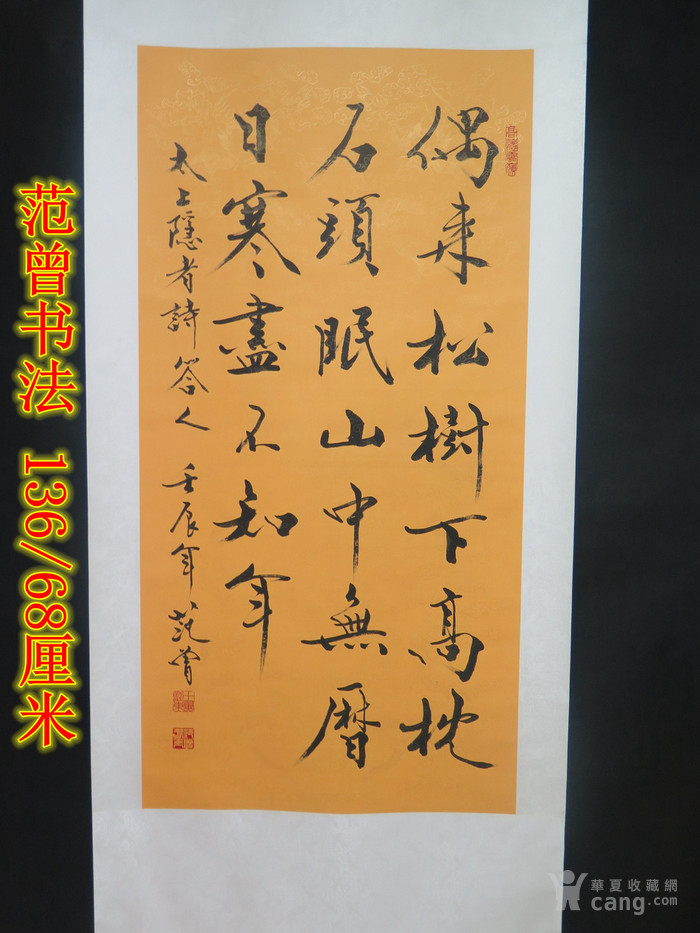 偶来松樹下高枕
石頭眠山中無曆
日寒盡不知年
太上隱者詩答人 壬辰年 范曾
范曾书法 136/68厘米
華夏收藏網
cang.com